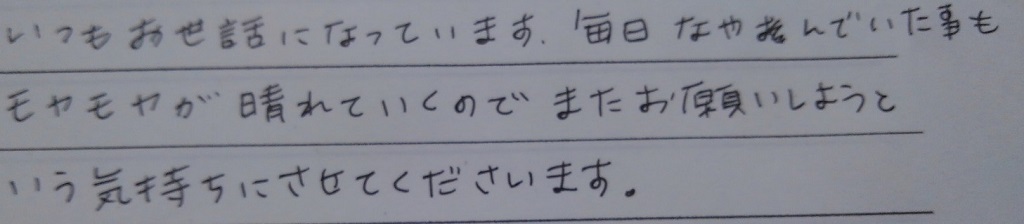 いつもお世話になっています、毎日なやんでいた事も
モヤモヤが晴れていくのでまたお願いしようと
いう気持ちにさせてくださいます。